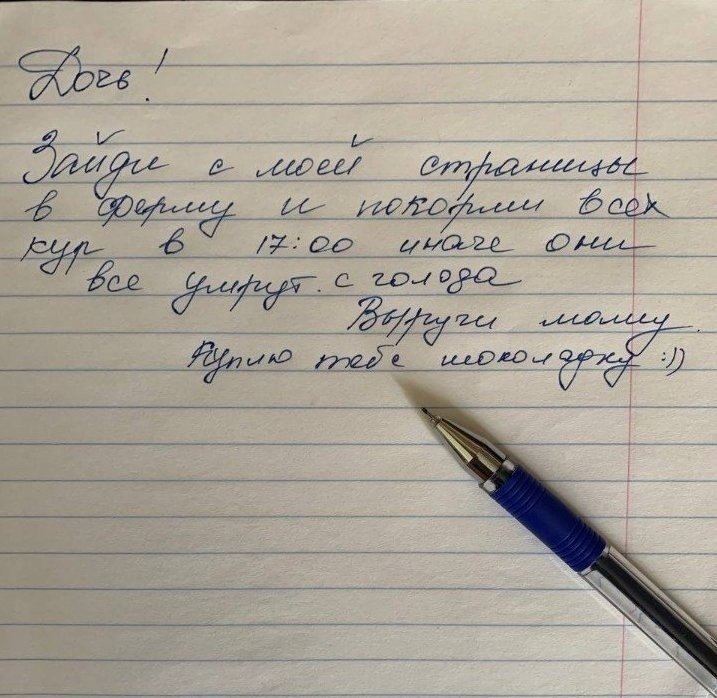 Дочь!
Зайди с моей страницы
в ферму и покорми всех
кур в 17:00 иначе они
все умрут с голода
Выручи маму.
Куплю тебе шоколадку :))